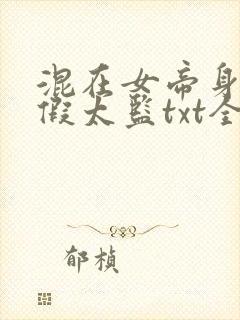 混在女帝身
假太监txt全
郁桢